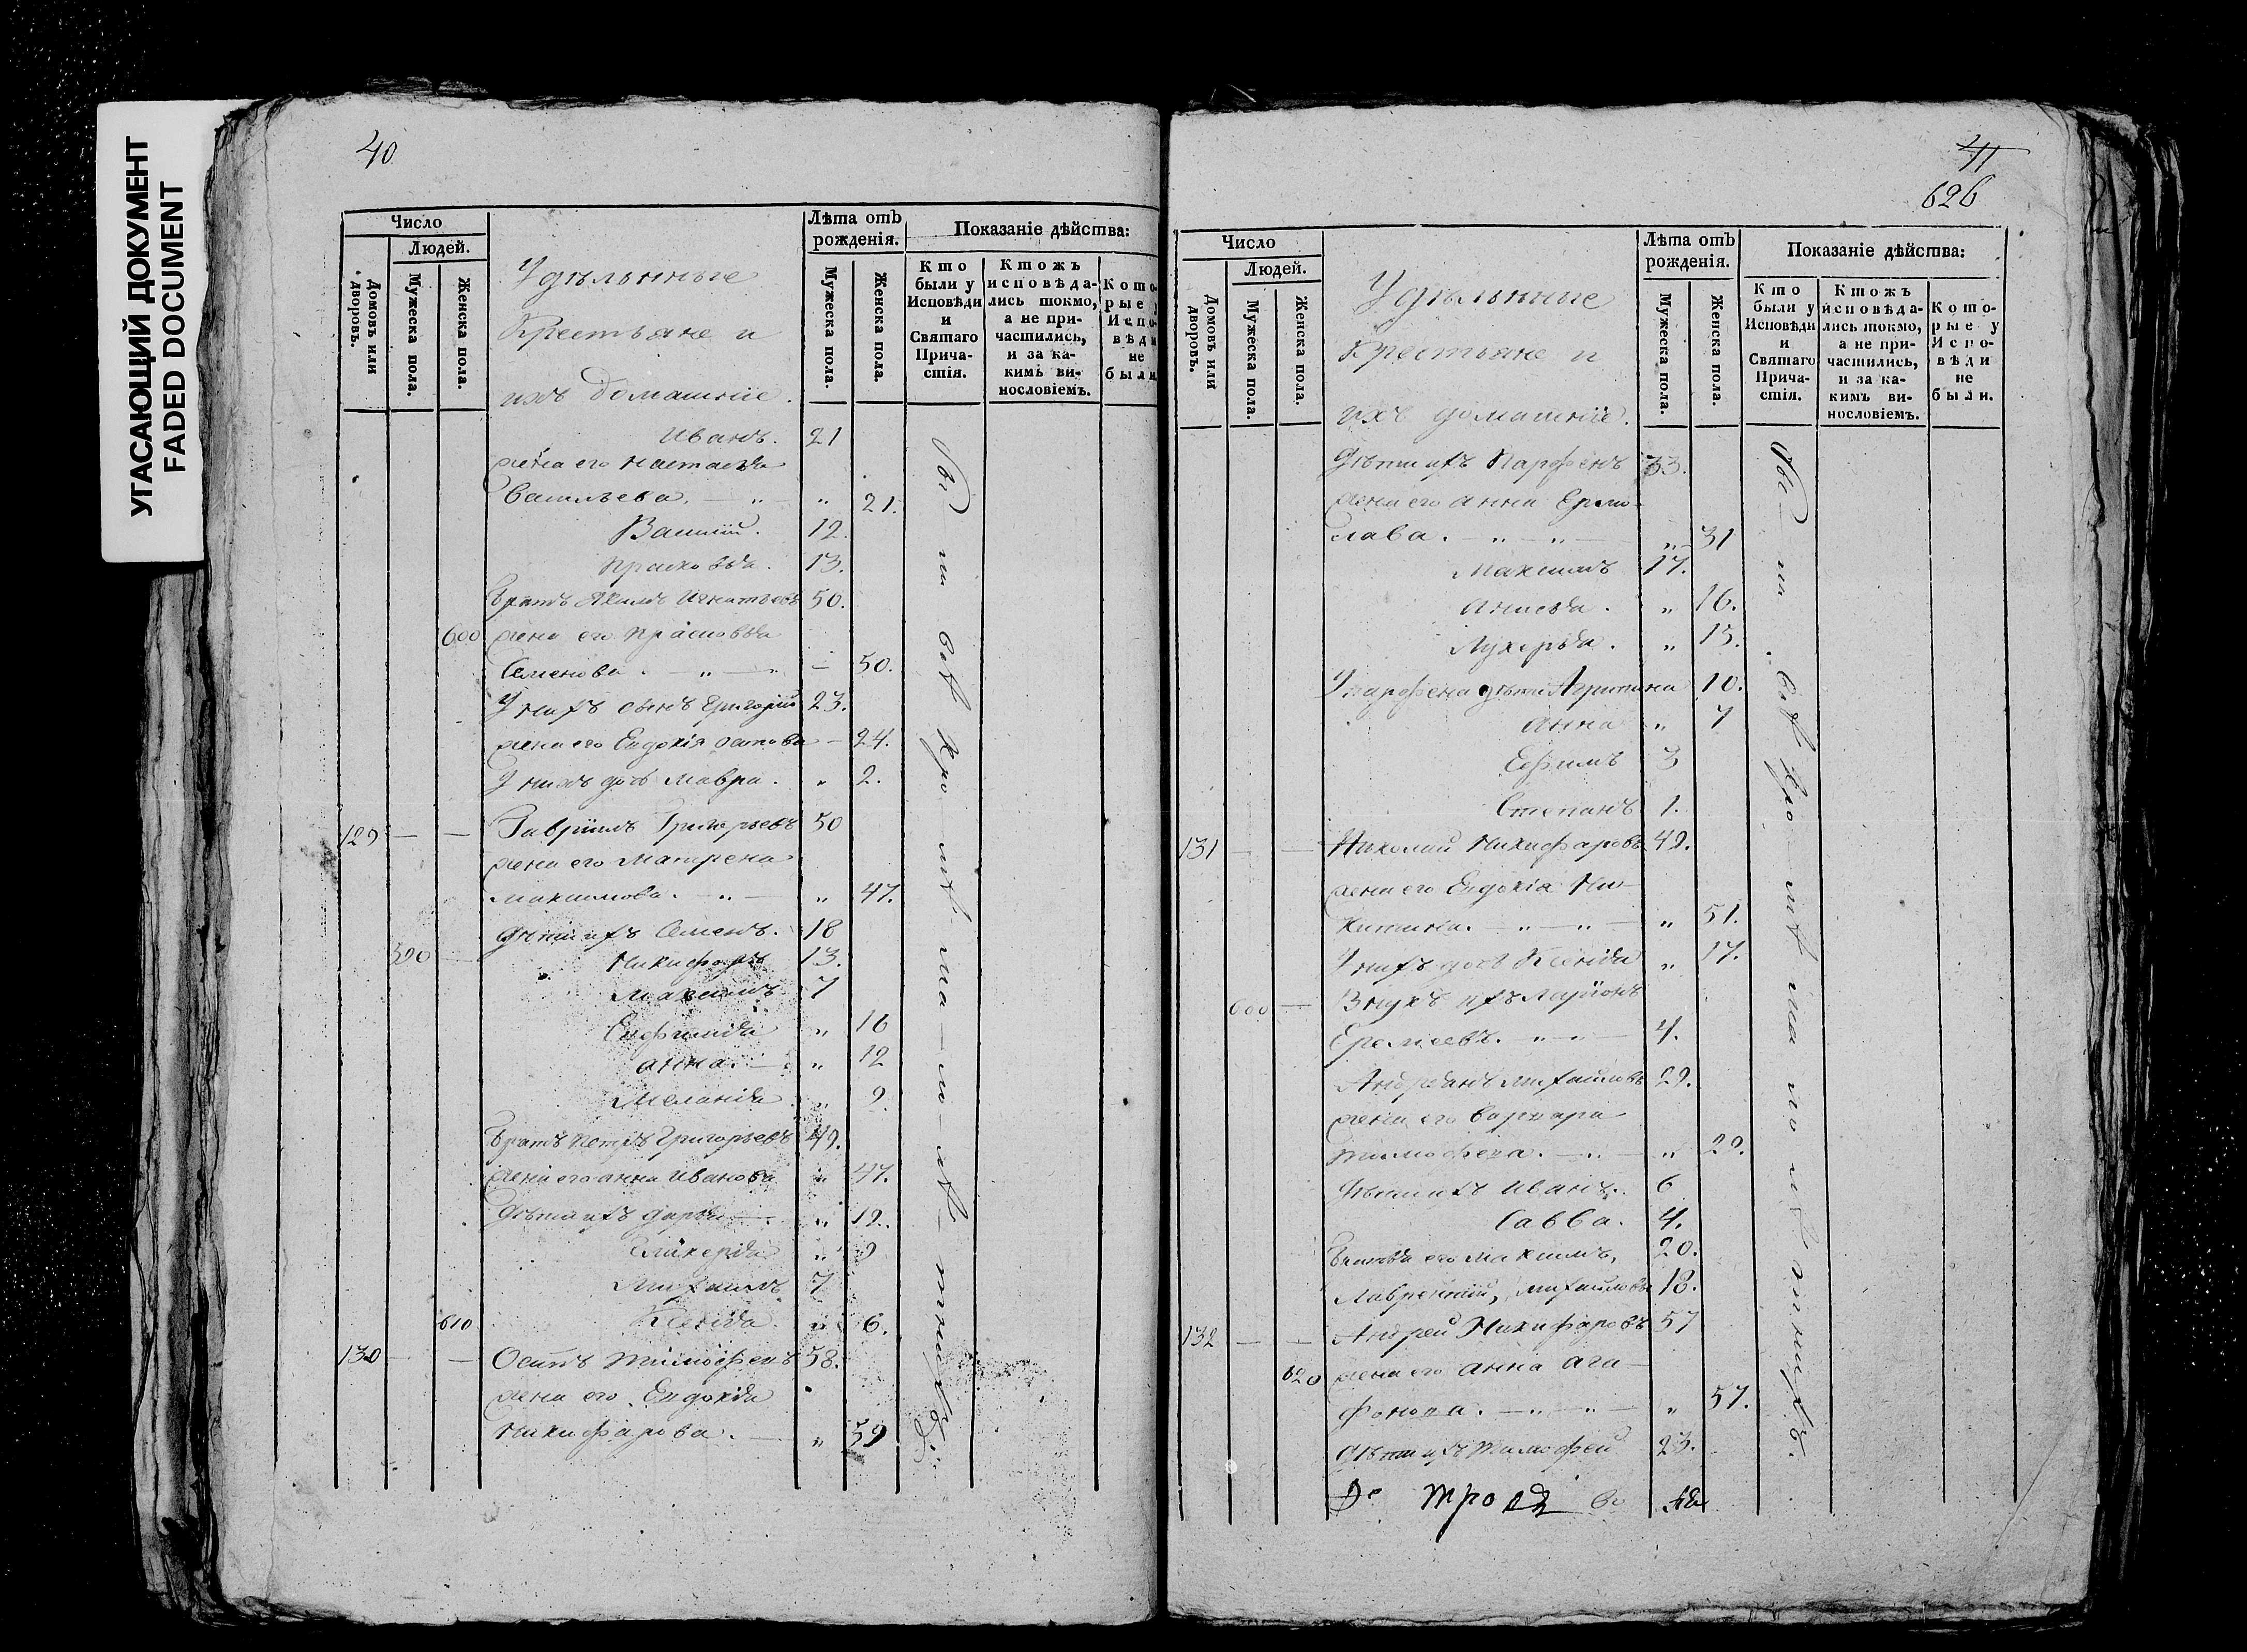 УГАСАЮЩИЙ ДОКУМЕНТ
FADED DOCUMENT
40
Число
Людей.
Домовъ или дворовъ.
Мужеска пола.
Женска пола.
Удѣльныие
Крестьяне и
ихъ домашніе.
Лѣта отъ рожденія.
Мужеска пола.
Женска пола.
Показаніе дѣйства:
Кто были у Исповѣди и Святаго Причастія.
Ктожъ исповѣдались токмо, а не причастились, и за какимъ винословіемъ.
Которые у Исповѣди не были
Иванъ. 21
жена его Настасья
Васильева. — „ — „ 21.
Василій. 12.
Прасковья. 13.
Братъ Акимъ Игнатьевъ 50.
600 жена его Прасковья
Семенова. — „ — „ — 50.
У нихъ сынъ Григорій 23.
жена его Евдокія — 24.
У нихъ дочь Мавра. „ 2.
129 — — Гавріилъ Григорьевъ 50
жена его Матрена
Максимова. — „ — „ 47.
Дѣти ихъ Семенъ. 18
590 — Никифоръ 13.
Максимъ 7
Евфимія „ 16
Анна. — „ 12
Меланія „ 9
Братъ Петръ Григорьевъ 49.
жена его Анна Иванова „ 47.
Дѣти ихъ Дарья — „ 12.
Гликерія „ 9
Михаилъ 7
610 Ксенія „ 6.
130 — — Осипъ Тимофеевъ 58.
жена его Евдокія
Никифарова. — „ 59
41
626
Число
Людей.
Домовъ или дворовъ.
Мужеска пола.
Женска пола.
Удѣльныие
Крестьяне и
ихъ домашніе.
Лѣта отъ рожденія.
Мужеска пола.
Женска пола.
Показаніе дѣйства:
Кто были у Исповѣди и Святаго Причастія.
Ктожъ исповѣдались токмо, а не причастились, и за какимъ винословіемъ.
Которые у Исповѣди не были.
Дѣти ихъ Парфенъ 33.
жена его Анна Ермо-
лава. — „ — „ — „ 31
Максимъ 17.
Анисья. „ 16.
Лукерья. „ 15.
У Парфена дѣти Агрипина 10.
Анна „ 7
Ефимъ 3
Степанъ 1.
131 — — Николай Никифаровъ 49.
жена его Евдокія Ни-
китина. — „ — „ — „ 51.
У нихъ дочь Ксенія „ 17.
600 — Внукъ ихъ Ларіонъ
Еремеевъ. — „ — „ — 4.
Андреянъ Михайловъ 29.
жена его Варвара
Тимофеева. — „ — „ 29.
Дѣти ихъ Иванъ. 6
Савва. 4.
Братья его Максимъ, 20.
Лаврентій, Михайловы 18.
132 — — Андрей Никифаровъ 57
620 жена его Анна Ага-
фонова. — „ — „ — „ 57.
Дѣти ихъ Тимофей 23.